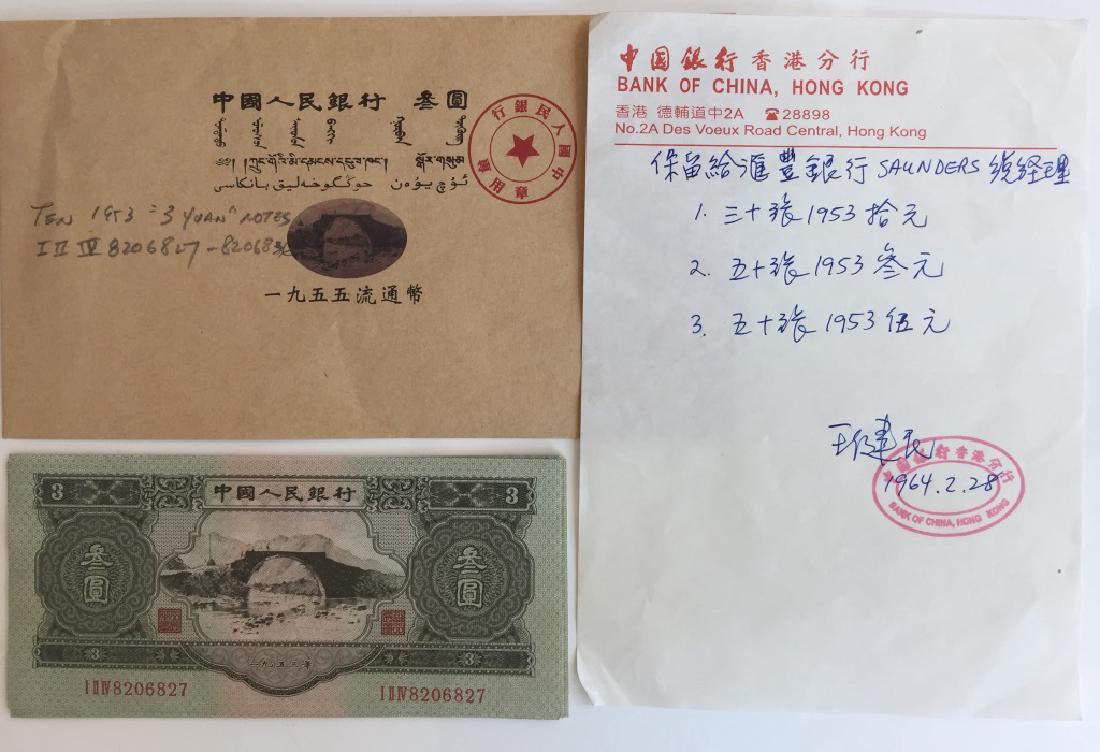 中國人民銀行 叁圓
中國人民銀行
專用章
TEN 1953 "3 YUAN" NOTES
I II IV 8206827 - 82068
一九五五流通幣
中国银行 香港分行
BANK OF CHINA, HONG KONG
香港 德輔道中2A ☎28898
No.2A Des Voeux Road Central, Hong Kong
保留給滙豐銀行 SAUNDERS 總经理
1. 三十张 1953 拾元
2. 五十张 1953 叁元
3. 五十张 1953 伍元
1964.2.28
中國銀行香港分行
BANK OF CHINA, HONG KONG
3 中國人民銀行 3
叁圓 叁圓
3 一九五三年 3
I II IV 8206827 I II IV 8206827